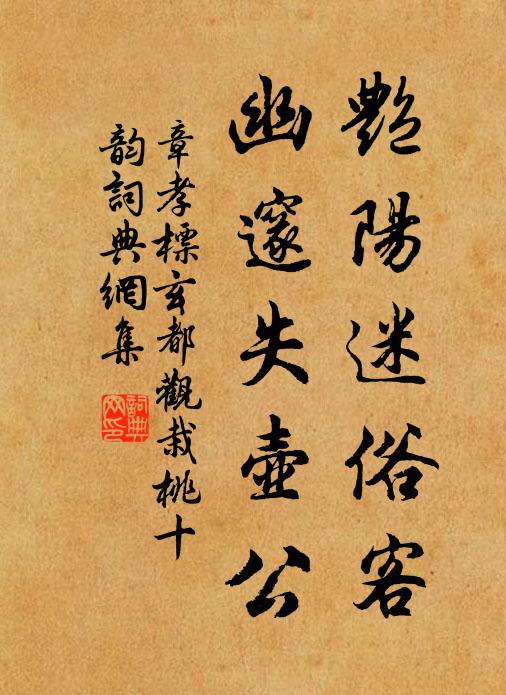 艷陽迷俗客
幽邃失壺公
章孝標玄都觀栽桃十
韵詞典網集
詞典網印